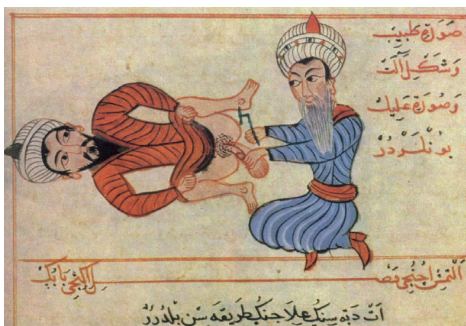 صورة طبيب
وشكل آلت
وصورة عليل
بونلردر
التمش اجنجي فصل ايكنجي بابك
ات دبه سنك علاجنك طريقه سن بلدرر